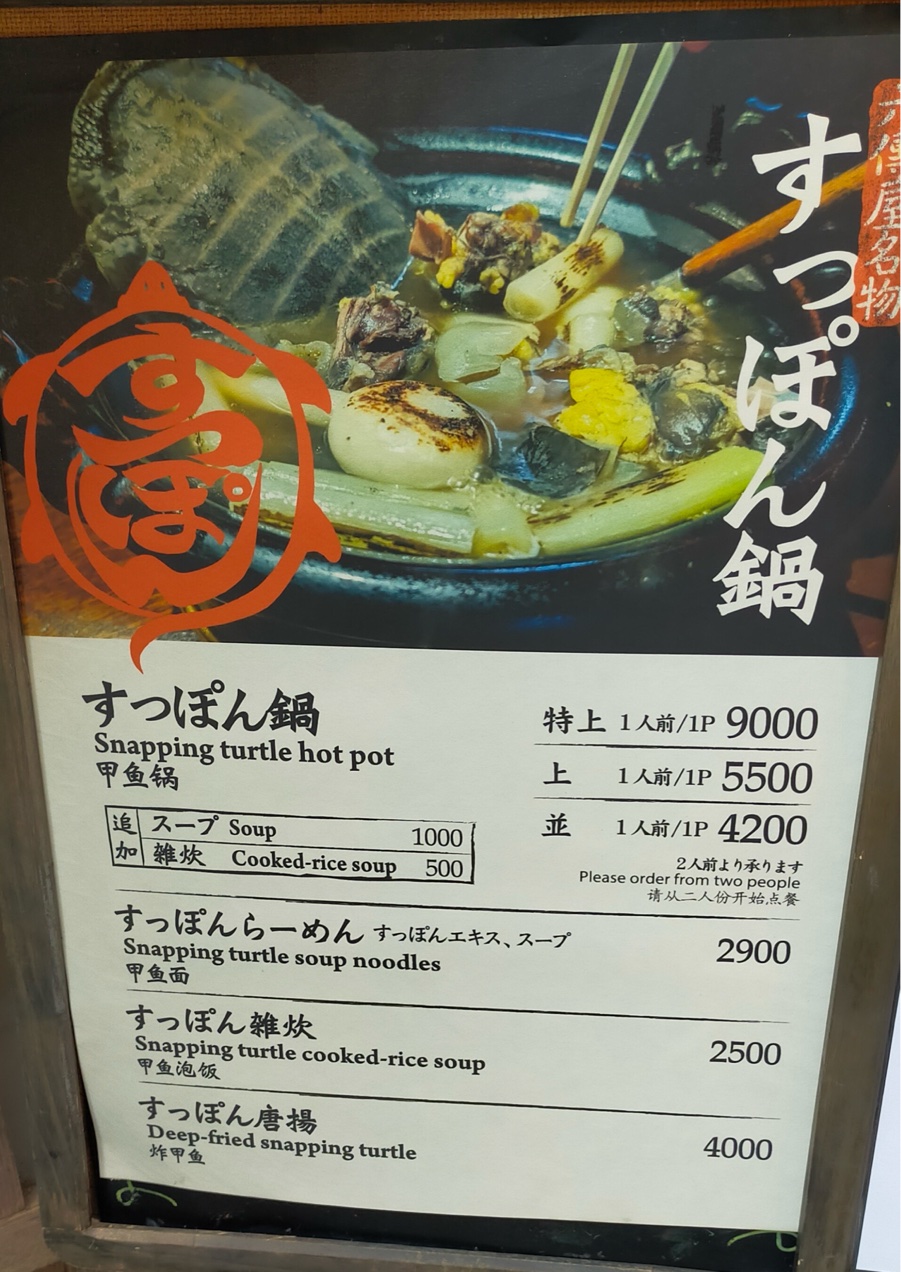 すっぽん鍋
屋名物
すっぽん
すっぽん鍋
Snapping turtle hot pot
甲鱼锅
特上 1人前/1P 9000
上 1人前/1P 5500
並 1人前/1P 4200
2人前より承ります
Please order from two people
请从二人份开始点餐
追加
スープ Soup 1000
雑炊 Cooked-rice soup 500
すっぽんらーめん すっぽんエキス、スープ 2900
Snapping turtle soup noodles
甲鱼面
すっぽん雑炊 2500
Snapping turtle cooked-rice soup
甲鱼泡饭
すっぽん唐揚 4000
Deep-fried snapping turtle
炸甲鱼